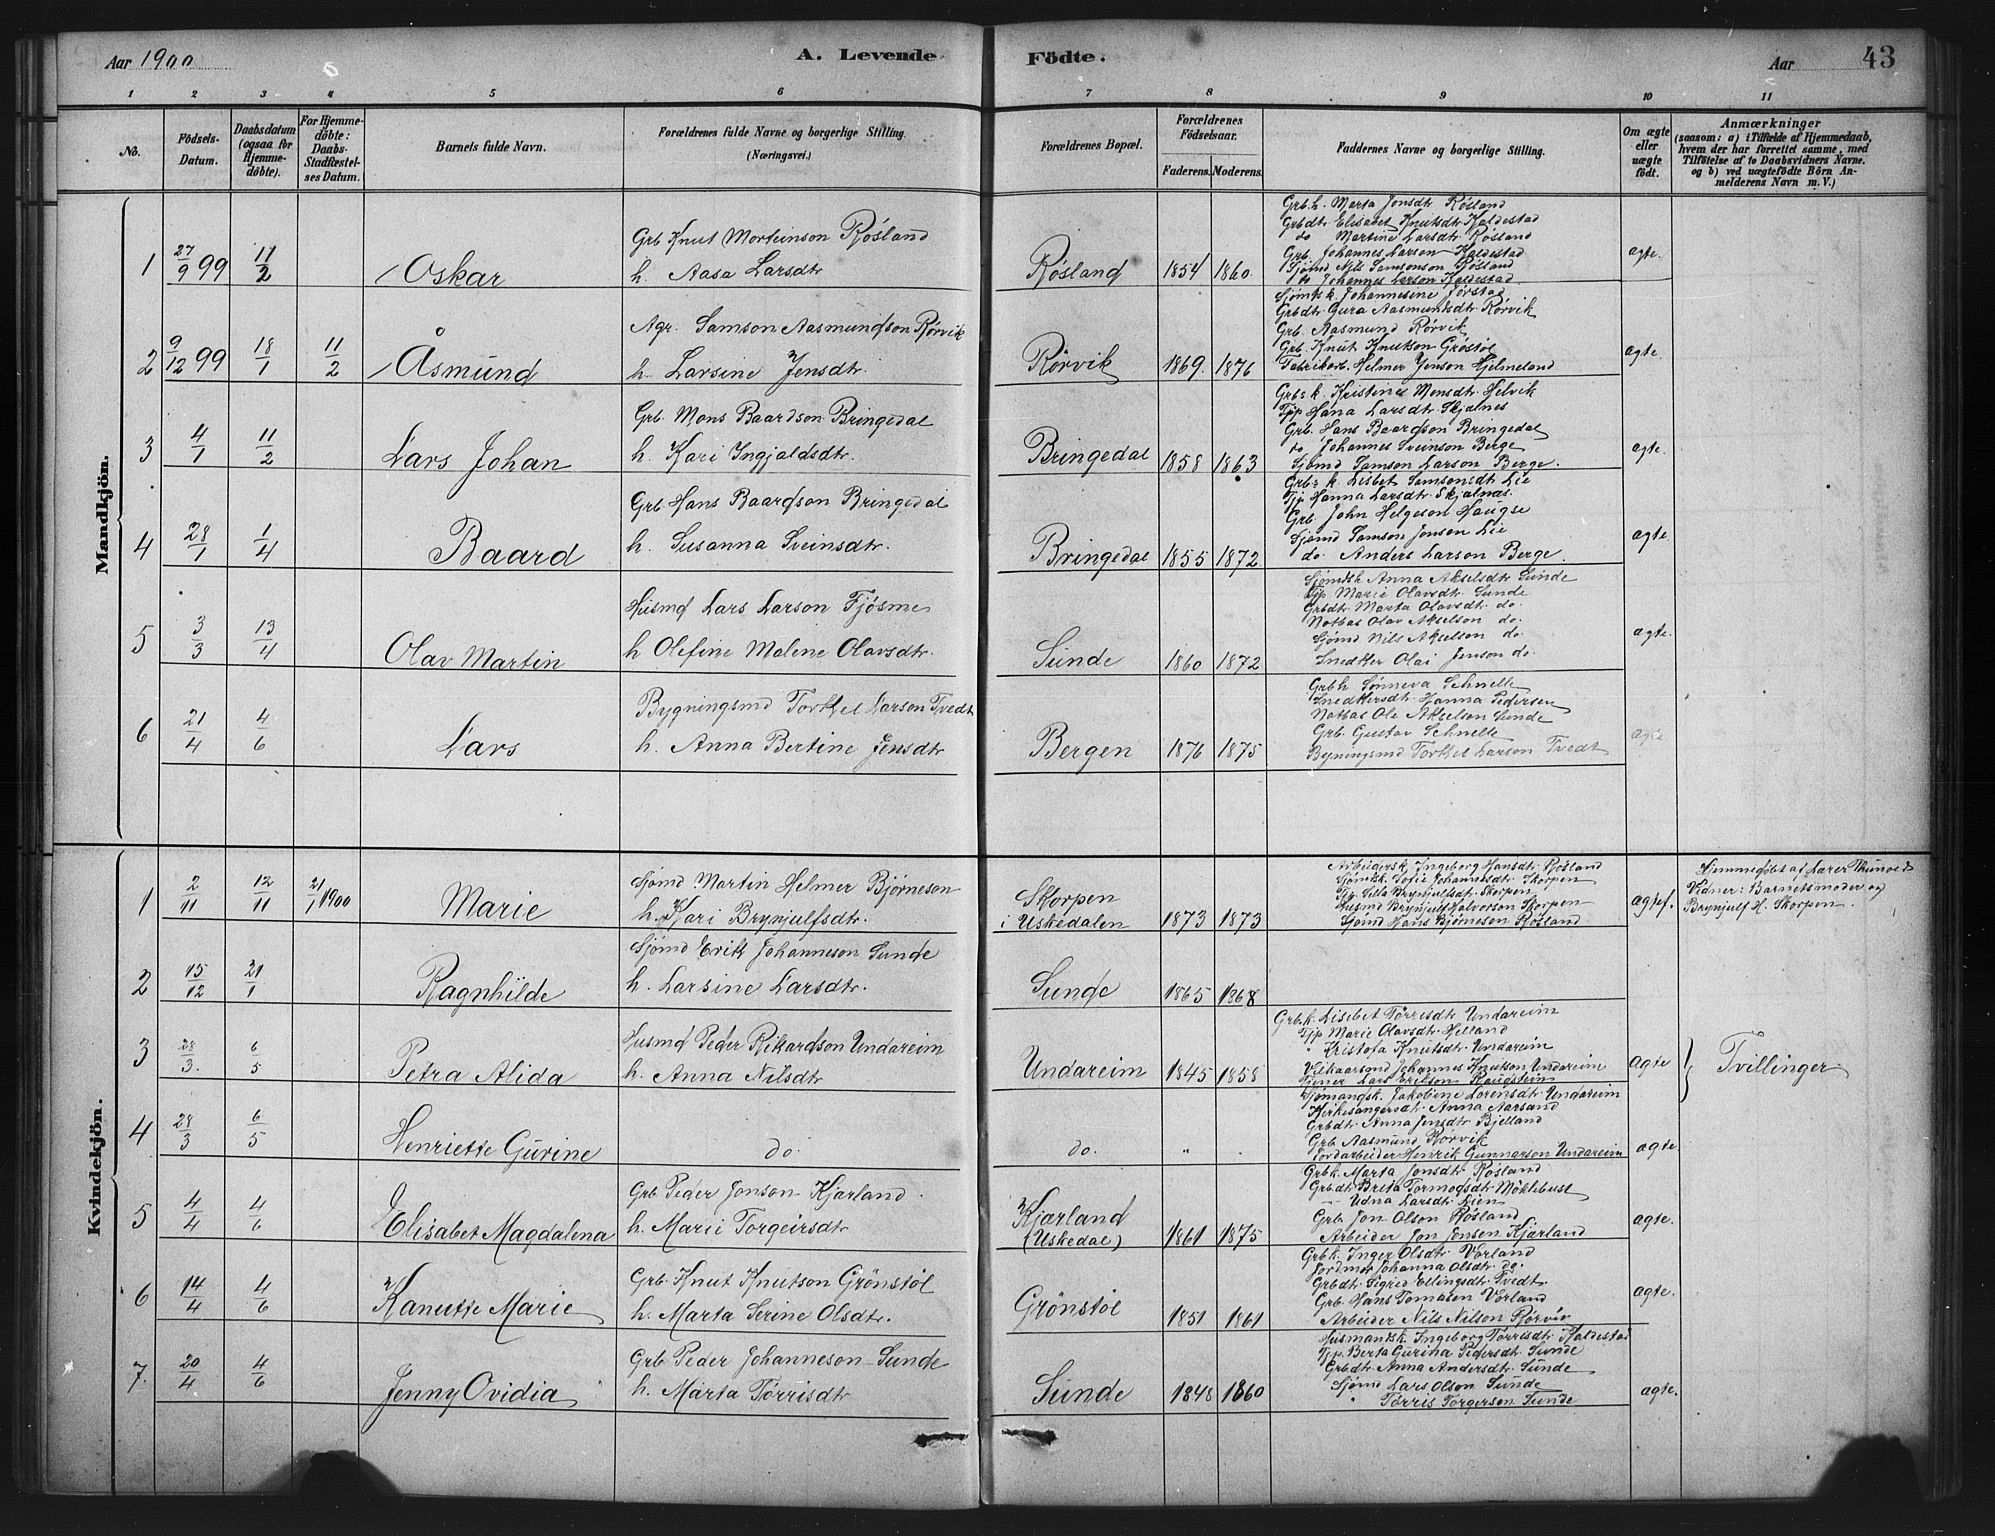 Aar 1900
A. Levende
Födte.
Aar
43
1 2 3 4 5 6 7 8 9 10 11
No.
Födsels-Datum.
Daabsdatum (ogsaa for Hjemme-döbte).
For Hjemme-döbte: Daabs-Stadfæstel-ses Datum.
Barnets fulde Navn.
Forældrenes fulde Navne og borgerlige Stilling.
(Næringsvei.)
Forældrenes Bopæl.
Forældrenes Födselsaar.
Faderens. Moderens.
Faddernes Navne og borgerlige Stilling.
Om ægte eller uægte födt.
Anmærkninger
(saasom: a) i Tilfælde af Hjemmedaab,
hvem der har forrettet samme, med
Tilföielse af to Daabsvidners Navne,
og b) ved uægtefödte Börn An-
melderens Navn m. V.)
Mandkjön.
1 27/9 99 11/2 Oskar
Grb Knut Morteinson Røsland
h. Aasa Larsdtr
Røsland 1854 1860
Grb.h. Marta Jonsdtr Røsland
Grbdtr Elisabet Knutsdtr Haldestad
do Martine Larsdtr Røsland
Grb. Johannes Larson Haldestad
Sjømd Nils Samsonson Røsland
do Johannes Larson Haldestad
ægte.
2 9/12 99 18/1 11/2 Åsmund
Agr. Samson Aasmundson Rørvik
h. Larsine Jensdtr.
Rørvik 1869. 1876
Sjømdsk. Johannesine Tørstad
Grbdtr Gura Aasmundsdtr Rørvik
Grb. Aasmund Rørvik
Grb. Knut Knutson Grøstøl
Fabrikarb. Helmer Jenson Hjelmeland
ægte.
3 4/1 11/2 Lars Johan
Grb. Mons Baardson Bringedal
h. Kari Ingjaldsdtr.
Bringedal 1858 1863
Grbs k. Kristines Monsdtr. Helvik
Tjp Hana Larsdtr. Skjalnes
Grb. Hans Baardson Bringedal
do Johannes Sveinson Berge
Sjømd Samson Larson Berge.
ægte.
4 28/1 1/4 Baard
Grb Hans Baardson Bringedal
h. Susanna Sveinsdtr.
Bringedal 1855 1872
Grbs k. Lisbet Samsonsdt Lie
Tjp Hanna Larsdtr Skjalnæs.
Grb. John Helgeson Haugse
Sjømd Samson Jonson Lie
do. Anders Larson Berge
ægte.
5 3/3 13/4 Olav Martin
Husmd Lars Larson Fjøsme
h Olefine Malene Olavsdtr.
Sunde 1860 1872
Sjømdsk Anna Akselsdtr Sunde
Tjp. Marie Olavsdtr. Sunde
Grbdtr Marta Olavsdtr do.
Notbas Olav Akselson do.
Sjømd Nils Akselson do
Snedker Olai Jenson do.
ægte.
6 21/4 4/6 Lars
Bygningsmd Torkel Larson Tvedt
h. Anna Bertine Jensdtr
Bergen 1876 1875
Grbh Sønneva Schnelle
Snedkersdtr. Hanna Pedersen
Notbas Ole Akselson Sunde
Grb. Gustav Schnelle
Bygningsmd Torkel Larson Tvedt
ægte
Kvindekjön.
1 2/11 12/11 21/1 1900 Marie
Sjømd Martin Helmer Bjørneson
h. Kari Brynjulfsdtr.
Skorpen
i Uskedalen 1873 1873
Arbeidersk Ingeborg Hansdtr Røsland
Sjømsk. Sofie Johannesdtr Skorpen
Tjp. Brynjulfsdtr. Skorpen
Husmd Brynjulf Halvorson Skorpen
Sjømd Hans Bjørneson Røsland
ægtef.
Hjemmedøbt af Lærer Thunoeds
Vidner: Barnets moder og
Brynjulf H. Skorpen.
2 15/12 21/1 Ragnhilde
Sjømd Erik Johanneson Sunde
h. Larsine Larsdtr.
Sunde 1865 1868
3 28/3. 6/5 Petra Alida
Husmd Peder Rikardson Undareim
h. Anna Nilsdtr
Undareim 1845 1858
Grb.k. Lisebet Tørrisdtr Undareim
Tjp. Marie Olavsdtr. Helland
" Kristofa Knutsdtr Undareim
Johannes Knutson Undareim
Tjener Lars Erikson
ægte
Tvillinger
4 28/3 6/5 Henriette Gurine
do. do. " "
Sjømandsk. Jakobine Lorensdtr Undareim
Kirkesangersdtr. Anna Aarsand
Grbdtr. Anna Jensdtr Bjelland
Grb Aasmund Rørvik
Jordarbeider Henrik Gunnarson Undareim
ægte.
5 4/4 4/6 Elisabet Magdalena
Grb Peder Jonson Kjærland.
h. Marie Torgeirsdtr
Kjærland
(Uskedal) 1861 1875
Grbk. Marta Jonsdtr Røsland
Grbdt Brita Tormodsdtr Møklebust
Udna Larsdtr Lien
Grb Jon Olson Røsland
Arbeider Jon Jensen Kjærland
ægte.
6 14/4 4/6 Kanutte Marie
Grb. Knut Knutson Grønstøl
h. Marta Serine Olsdtr.
Grønstøl 1851 1861
Grbk. Inger Olsdtr Vorland
Jordmor Johanna Olsdtr do.
Grbdtr. Sigrid Ellingsdtr Tvedt
Grb. Hans Tomasen Vorland
Arbeider Nils Nilson Rørvik
ægte.
7. 20/4 4/6 Jenny Ovidia
Grb Peder Johanneson Sunde
h. Marta Tørrisdtr
Sunde 1848 1860
Husmandsk. Ingeborg Tørrisdtr Haldestad
Tjp. Berta Gurina Pedersdtr Sunde
Grbdtr Anna Andersdtr Sunde
Sjømd Lars Olson Sunde
" Tørris Torgerson Sunde
ægte.